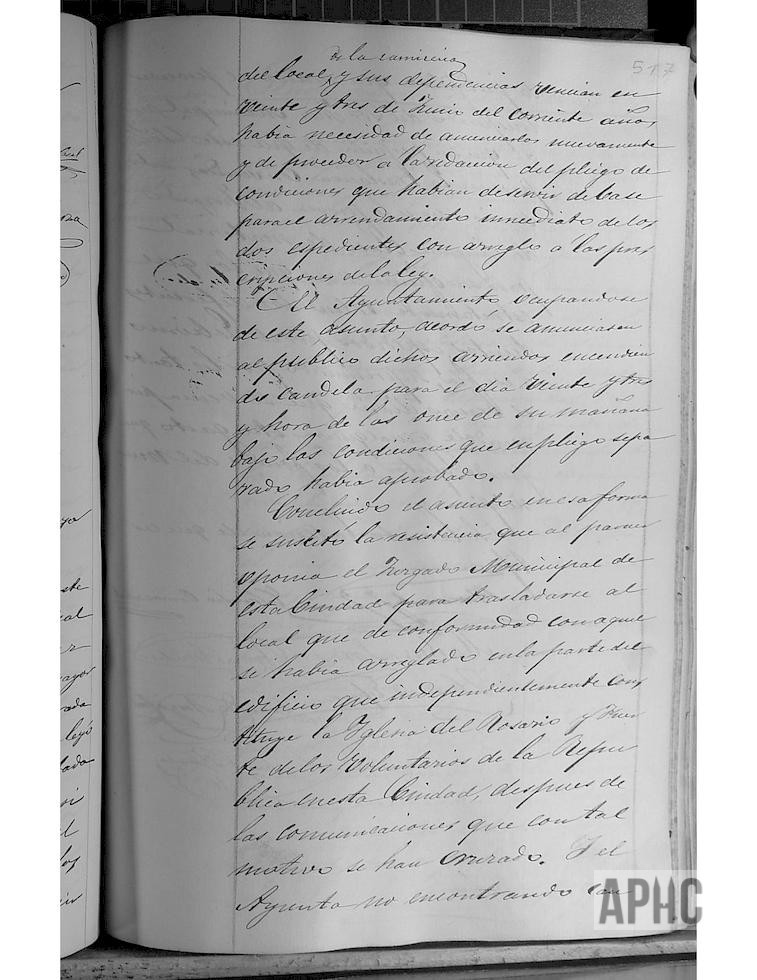 517
de la carniceria
del local, y sus dependencias vencian en
veinte y tres de Junio del corriente año,
habia necesidad de anunciarlos nuevamente
y de proceder a la redaccion del pliego de
condiciones que habian de servir de base
para el arrendamiento inmediato de los
dos espedientes con arreglo a las pres
cripciones de la ley.
El Ayuntamiento, ocupandose
de este asunto, acordó se anunciasen
al publico dichos arriendos encendien
do candela para el dia veinte y tres
y hora de las once de su mañana
bajo las condiciones que en pliego sepa
rado habia aprobado.
Concluido el asunto en esa forma
se suscitó la resistencia que al parecer
oponia el Juzgado Municipal de
esta Ciudad para trasladarse al
local que de conformidad con aquel
se habia arreglado en la parte del
edificio que independientemente cons
tituye la Iglesia del Rosario y Fuer
te de los Voluntarios de la Repu
blica en esta Ciudad, despues de
las comunicaciones que con tal
motivo se han cruzado. Y el
Ayunto no encontrando con
APHC